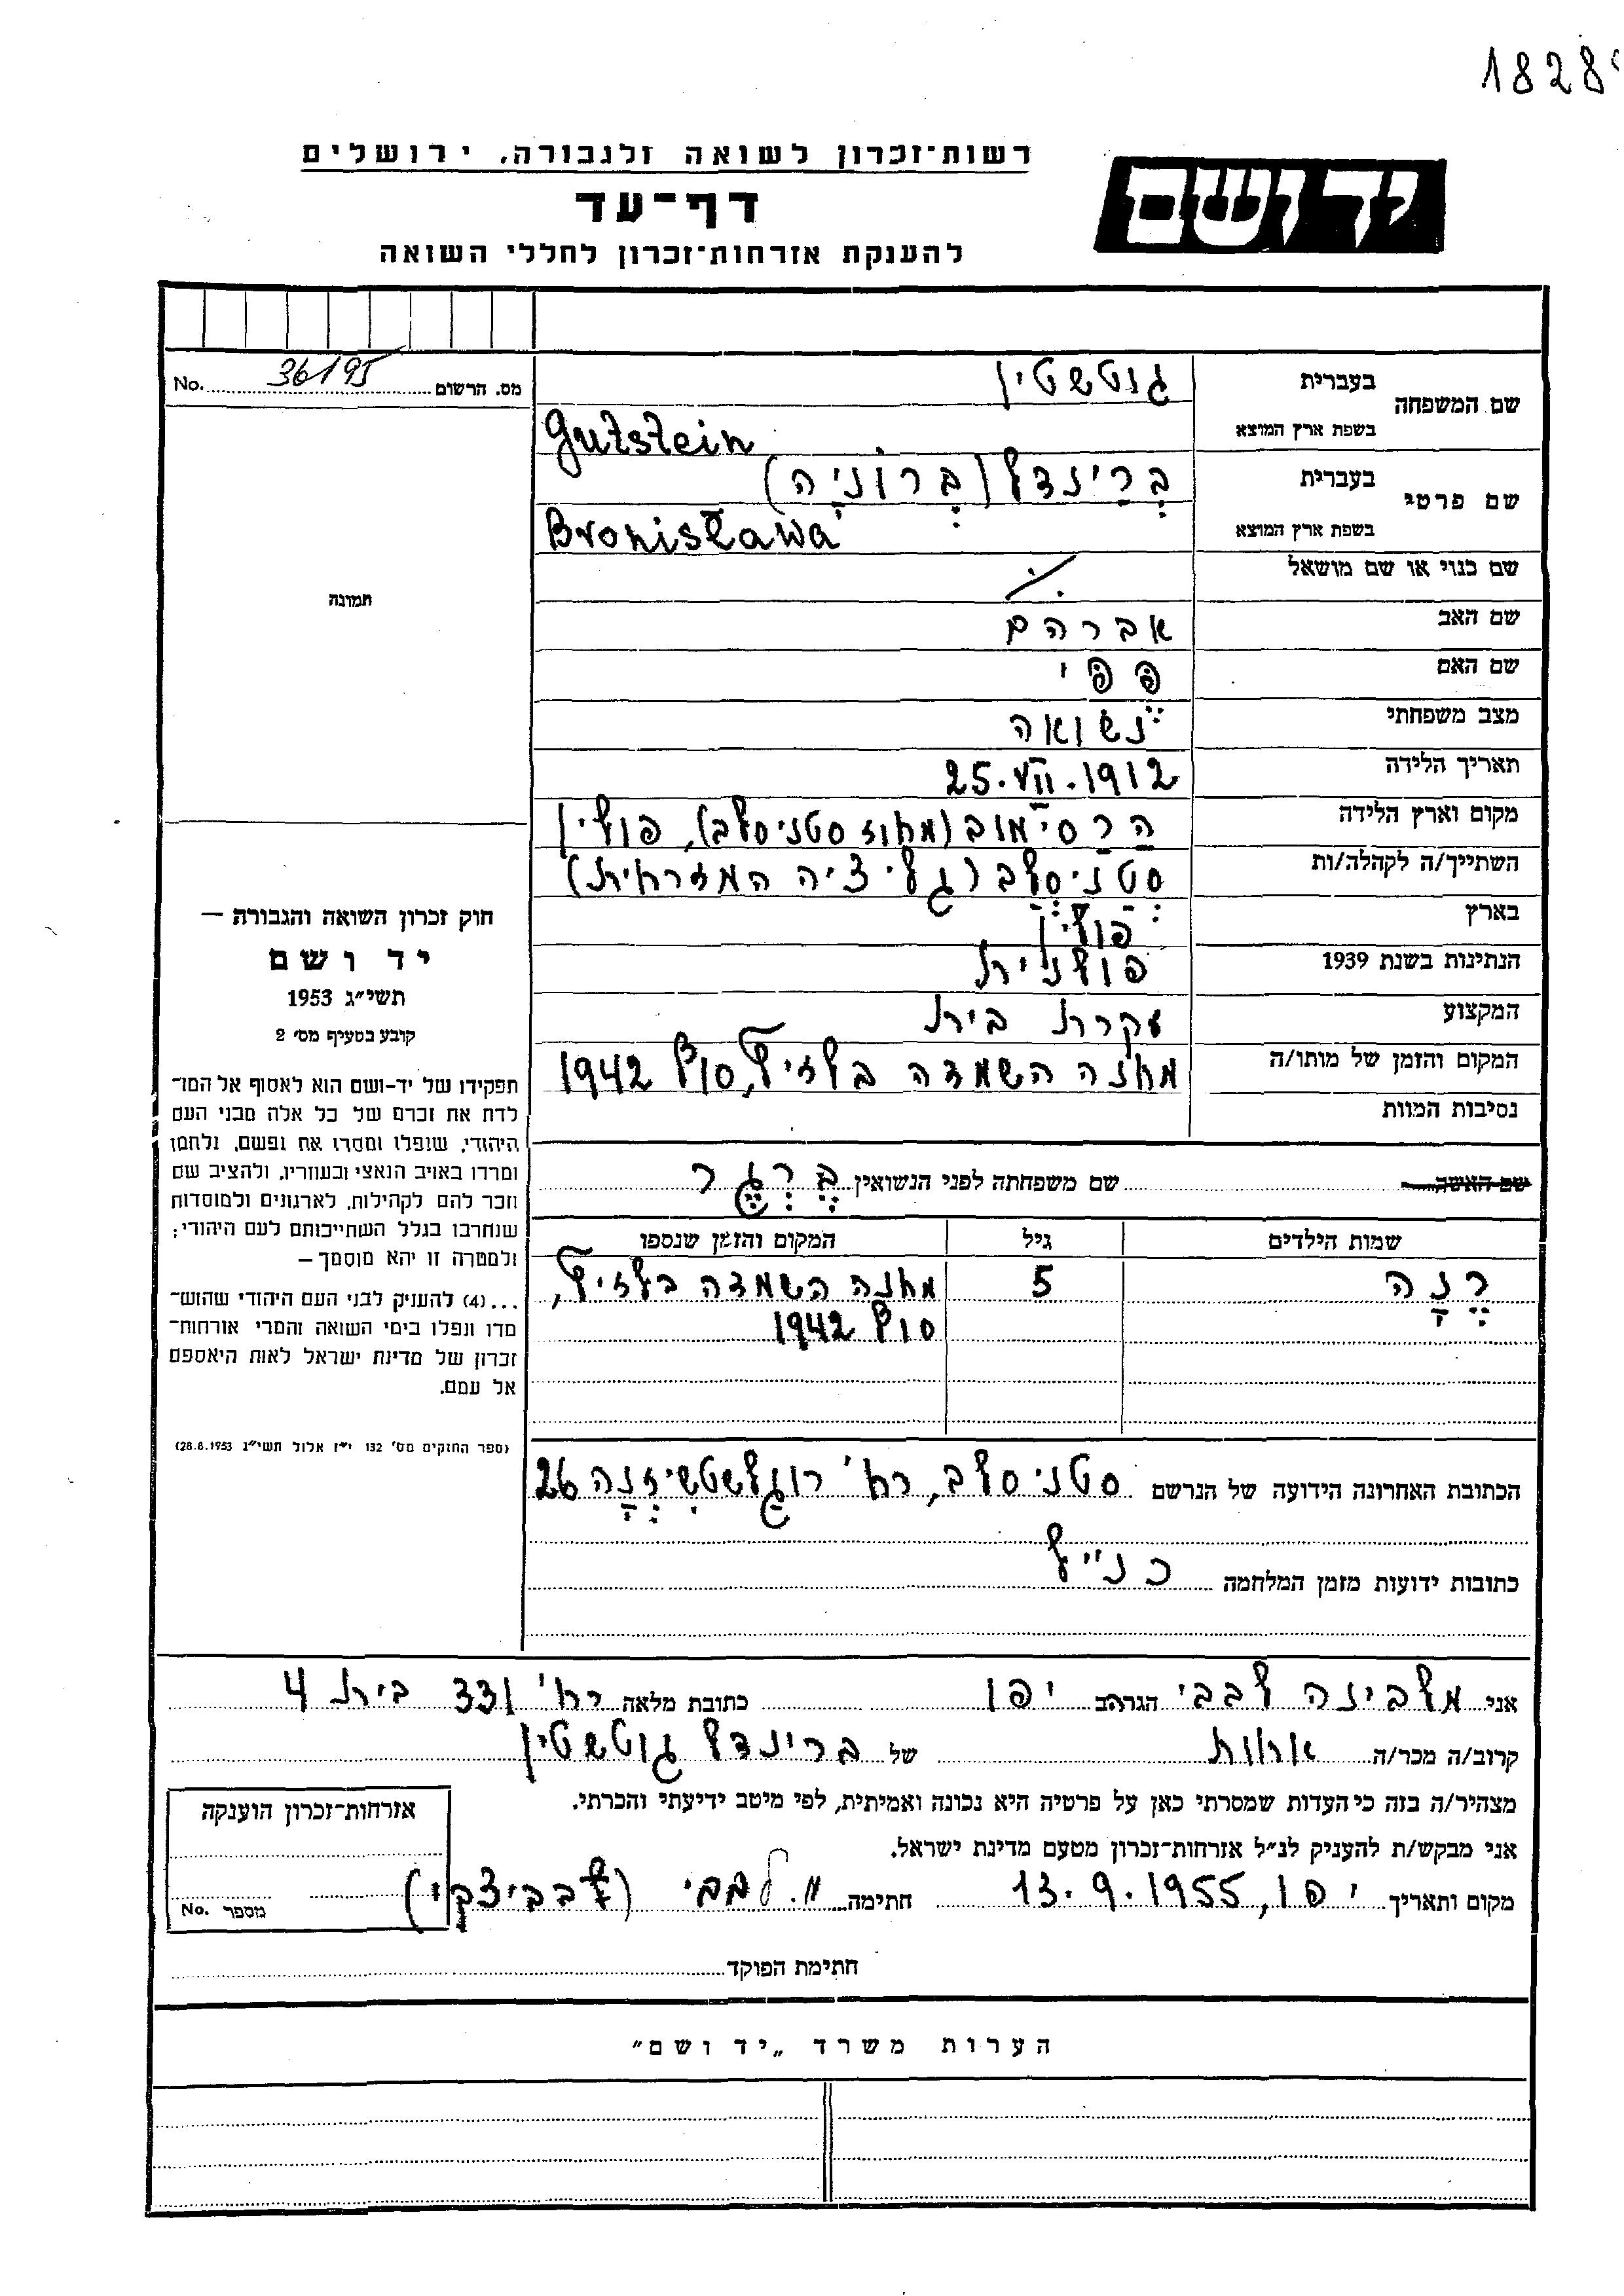 1828
רשות־זכרון לשואה ולגבורה, ירושלים
יד ושם
דף־עד
להענקת אזרחות־זכרון לחללי השואה
מס. הרשום 36195 No.
שם המשפחה
בעברית גוטשטין
בשפת ארץ המוצא Gutstein
שם פרטי
בעברית בְּרַינדל (בְּרוֹניָה)
בשפת ארץ המוצא Bronisława
שם כנוי או שם מושאל ./.
שם האב אברהם
שם האם פפי
מצב משפחתי נשואה
תאריך הלידה 25.VII.1912
מקום וארץ הלידה הרסימוב (מחוז סטניסלב), פולין
השתייך/ה לקהלה/ות סטניסלב (גליציה המזרחית)
בארץ פולין
הנתינות בשנת 1939 פולנית
המקצוע עקרת בית
המקום והזמן של מותו/ה מחנה השמדה בלזיץ, סוף 1942
נסיבות המוות
שם האשה שם משפחתה לפני הנשואין בֶּרְגֶר
שמות הילדים גיל המקום והזמן שנספו
רֶנָה 5 מחנה השמדה בלזיץ,
סוף 1942
הכתובת האחרונה הידועה של הנרשם סטניסלב, רח'  26
כתובות ידועות מזמן המלחמה כנ"ל
תמונה
חוק זכרון השואה והגבורה —
יד ושם
תשי״ג 1953
קובע בסעיף מס׳ 2
תפקידו של יד-ושם הוא לאסוף אל המו־
לדת את זכרם של כל אלה מבני העם
היהודי, שנפלו ומסרו את נפשם, נלחמו
ומרדו באויב הנאצי ובעוזריו, ולהציב שם
וזכר להם לקהילות, לארגונים ולמוסדות
שנחרבו בגלל השתייכותם לעם היהודי;
ולמטרה זו יהא מוסמך —
...(4) להעניק לבני העם היהודי שהוש־
מדו ונפלו בימי השואה והמרי אזרחות־
זכרון של מדינת ישראל לאות היאספם
אל עמם.
(ספר החוקים מס׳ 132 י״ז אלול תשי״ג 28.8.1953)
אני מלבינה לבבי הגר/ה ב יפו כתובת מלאה רח' 331 בית 4
קרוב/ה מכר/ה אחות של בריינדל גוטשטין
מצהיר/ה בזה כי העדות שמסרתי כאן על פרטיה היא נכונה ואמיתית, לפי מיטב ידיעתי והכרתי.
אני מבקש/ת להעניק לנ״ל אזרחות־זכרון מטעם מדינת ישראל.
מקום ותאריך יפו, 13.9.1955 חתימה מ. לבבי (לבביצקי)
אזרחות־זכרון הוענקה
מספר No.
חתימת הפוקד
הערות משרד „יד ושם״